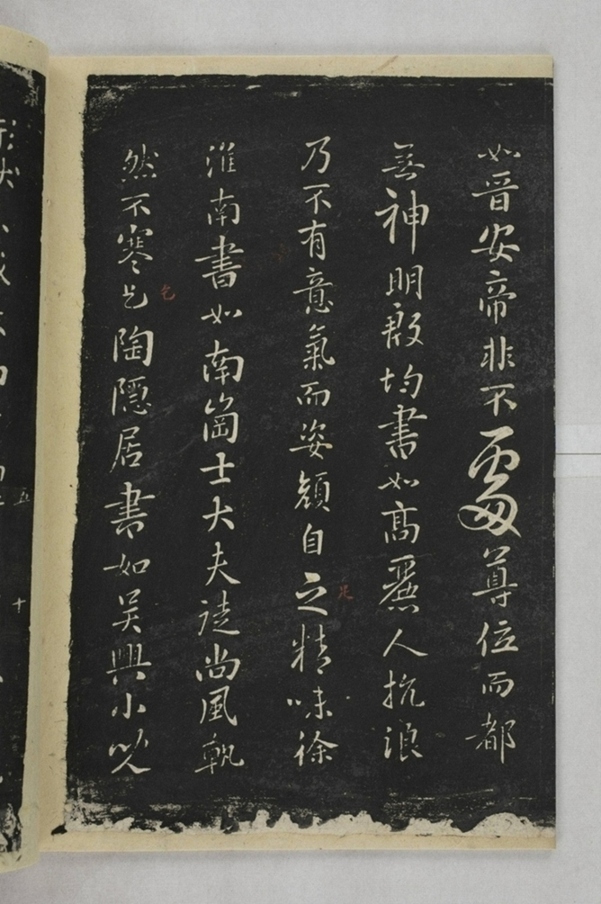 如晉安帝非不處尊位而都
無神明殷均書如高麗人抗浪
乃不有意氣而姿顏自乏精味徐
淮南書如南崗士大夫徒尚風軌
然不寒乞陶隱居書如吳興小兒
乞